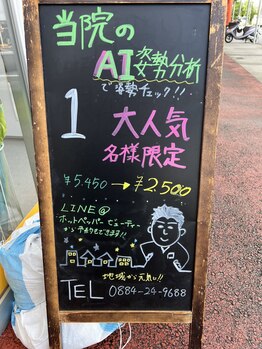 当院の
AI姿勢分析
で姿勢チェック!!
大人気
1名様限定
¥5.450→¥2.500
LINE@
ホットペッパービューティー
から予約もできます!!
地域から元気に!!
TEL 0884-24-9688